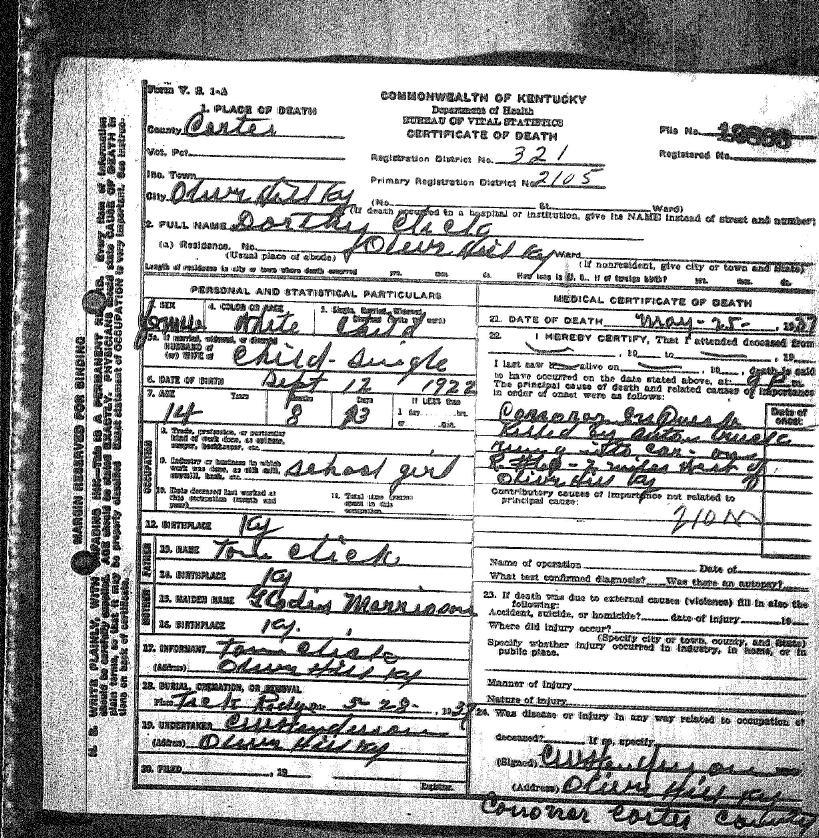 Form V. S. 1-A
COMMONWEALTH OF KENTUCKY
Department of Health
BUREAU OF VITAL STATISTICS
CERTIFICATE OF DEATH
1. PLACE OF DEATH
County Carter
File No.
Registered No.
Vot. Pct.
Registration District No. 321
Inc. Town
Primary Registration District No. 2105
City Olive Hill Ky (No. St. Ward)
(If death occurred in a hospital or institution, give its NAME instead of street and number)
2. FULL NAME Dorthy Click
(a) Residence. No. Olive Hill Ky Ward
(Usual place of abode) (If nonresident, give city or town and State)
Length of residence in city or town where death occurred yrs. mos. ds. How long in U. S., if of foreign birth? yrs. mos. ds.
PERSONAL AND STATISTICAL PARTICULARS
3. SEX 4. COLOR OR RACE 5. Single, Married, Widowed,
White Child
5a. If married, widowed, or divorced
HUSBAND of
(or) WIFE of Child - Single
6. DATE OF BIRTH Sept 12 1922
7. AGE Years Months Days If LESS than
14 8 13 1 day, hrs.
or
OCCUPATION
8. Trade, profession, or particular
kind of work done, as spinner,
sawyer, bookkeeper, etc.
9. Industry or business in which
work was done, as silk mill,
sawmill, bank, etc. School girl
10. Date deceased last worked at
this occupation (month and
year)
11. Total time (years)
spent in this
occupation
12. BIRTHPLACE Ky
FATHER
13. NAME Tom Click
14. BIRTHPLACE Ky
MOTHER
15. MAIDEN NAME Gladis
16. BIRTHPLACE Ky.
17. INFORMANT Tom Click
(Address) Olive Hill Ky
18. BURIAL, CREMATION, OR REMOVAL
Place 5-28-, 1937
19. UNDERTAKER CW Henderson
(Address) Olive Hill Ky
20. FILED , 19
Registrar.
MEDICAL CERTIFICATE OF DEATH
21. DATE OF DEATH May - 25 - , 1937
22. I HEREBY CERTIFY, That I attended deceased from
, 19 to , 19
I last saw alive on , 19 , death is said
to have occurred on the date stated above, at m.
The principal cause of death and related causes of importance
in order of onset were as follows:
Date of
onset
Killed by auto truck
2 miles West of
Olive Hill Ky
Contributory causes of importance not related to
principal cause:
Name of operation Date of
What test confirmed diagnosis? Was there an autopsy?
23. If death was due to external causes (violence) fill in also the
following:
Accident, suicide, or homicide? date of injury 19
Where did injury occur?
(Specify city or town, county, and State)
Specify whether injury occurred in industry, in home, or in
public place.
Manner of injury
Nature of injury
24. Was disease or injury in any way related to occupation of
deceased? If so, specify
(Signed) CW Henderson
(Address) Olive Hill Ky
Cornoner Carter County
MARGIN RESERVED FOR BINDING